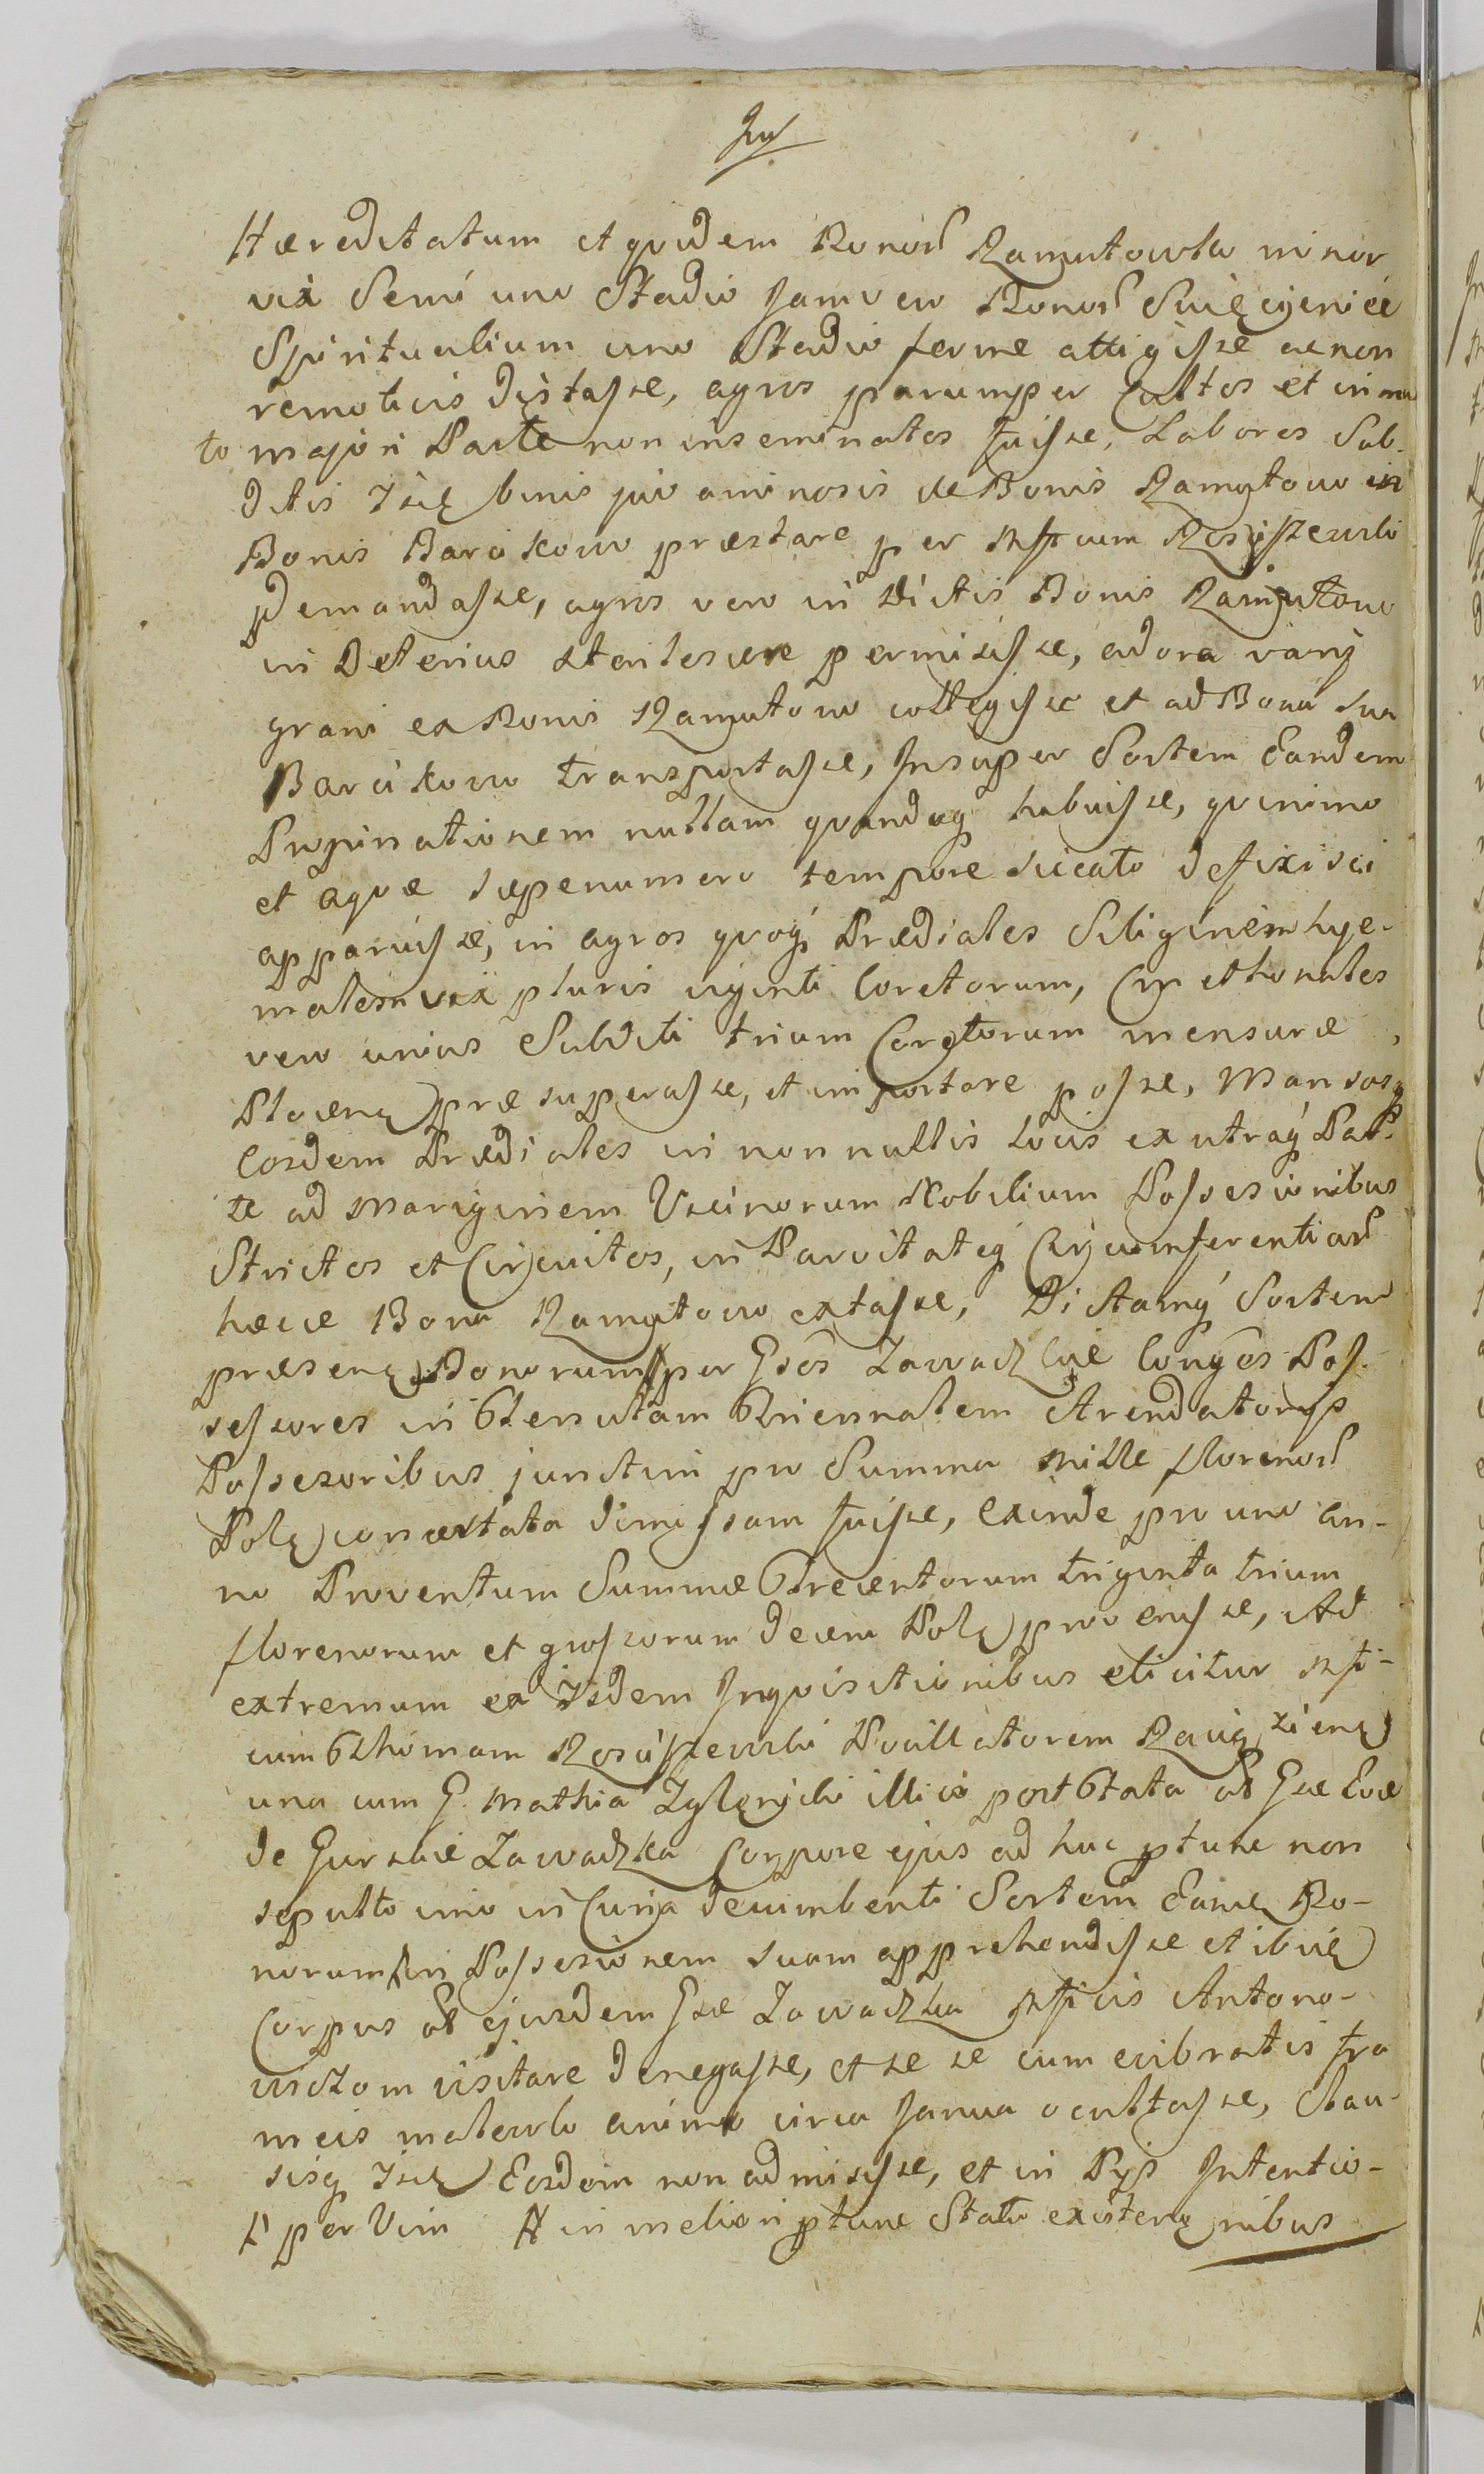 Hæreditatum et qvidem Bonor Ramutowko minor
vix Semi uno Stadio Jamvero Bonor Święcienice
Spiritualium uno Stadio ferme attigisse ac non
remotius distasse, agros parumper Cultos et in
to majori Parte non inseminatos fuisse, Labores Sub-
ditis binis de Bonis Ramutowo in
Bonis Barcikowo præstare per Mfcum Rosciszewski
demandasse, agros vero in dictis Bonis Ramutowo
in Deterius sterilescere permisisse, adora varij
grani ex Bonis Ramutowo collegisse et ad Bona sua
Barcikowo transportasse, Insuper Sortem Eandem
Propinationem nullam qvandoq habuisse, qvinimo
et aqvæ sæpenumero tempore siccato
apparuisse, in agros qvoq Prædiales Siliginem hye-
malem vix pluris viginti Coretorum, Cmethonales
vero unius Subditi trium Coretorum mensuræ
Plocen præ superasse, et importare posse, Mansosq
Eosdem Prædiales in nonnullis Locis ex utraq Par-
te ad Marginem Vicinorum Nobilium Possesionibus
Strictos et Circuitos, in Parvitateq Circumferentiar
hæcce Bona Ramutowo extasse, Dictamq Sortem
præsen Bonorum per Gsos Zawadzkie Conges Pos-
sessores in Tenutam Triennalem Arendatoriis
Possesoribus junctim pro Summa Mille florenor
Pol contextata dimissam fuisse, Exinde pro uno an-
no Proventum Summæ Trecentorum triginta trium
florenorum et grossorum decem Pol provenisse, Ad
extremum ex Iisdem Inqvisitionibus elicitur Mfi-
cum Thomam Rosciszewski Pocillatorem Raciązien
una cum G. Mathia illico post Fata ol Gsæ Evæ
de Gurskie Zawadzka Corpore ejus ad huc ptunc non
sepulto imo in Curia decumbenti Sortem Eanc Bo-
norum in Possesionem suam apprehendisse et ibi
Corpus ol ejusdem Gsæ Zawadzka Mficis Antono-
visitare denegasse, et se se cum evibratis fra
meis malevolo animo circa Janua occultasse, Clau-
sisq Eosdem non admisisse, et in Pijs Intentio-
per Vim # in meliori ptunc Statu existen nibus